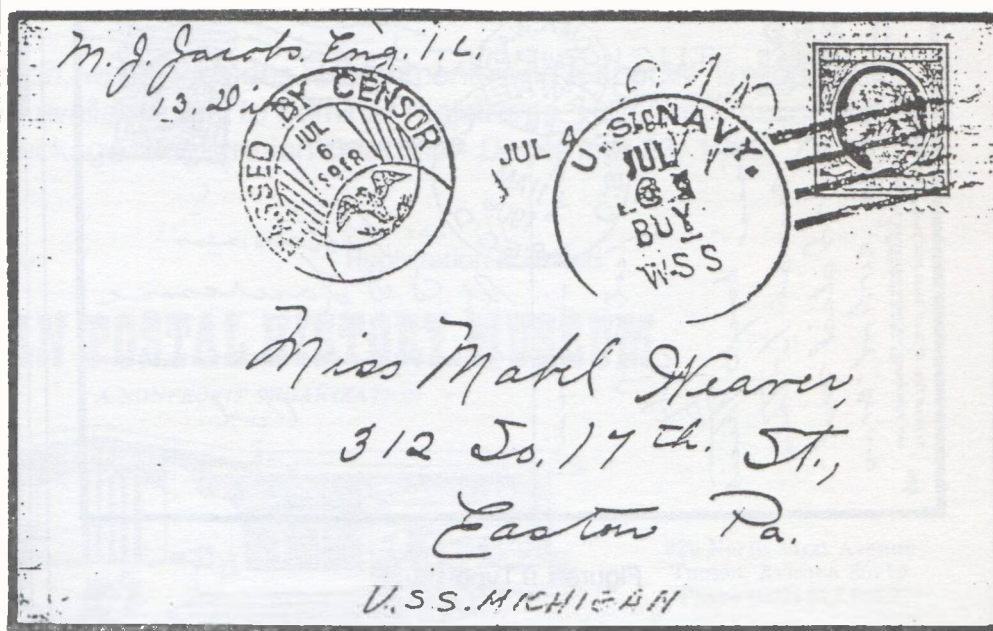 M. J. Jacobs. Eng. 1. C.
13. Div.
PASSED BY CENSOR
JUL
6
1918
JUL 4
U.S. NAVY.
JUL
6
BUY
W.S.S
U.S. POSTAGE
Miss Mabel Weaver,
312 So. 17th. St.,
Easton Pa.
U.S.S. MICHIGAN